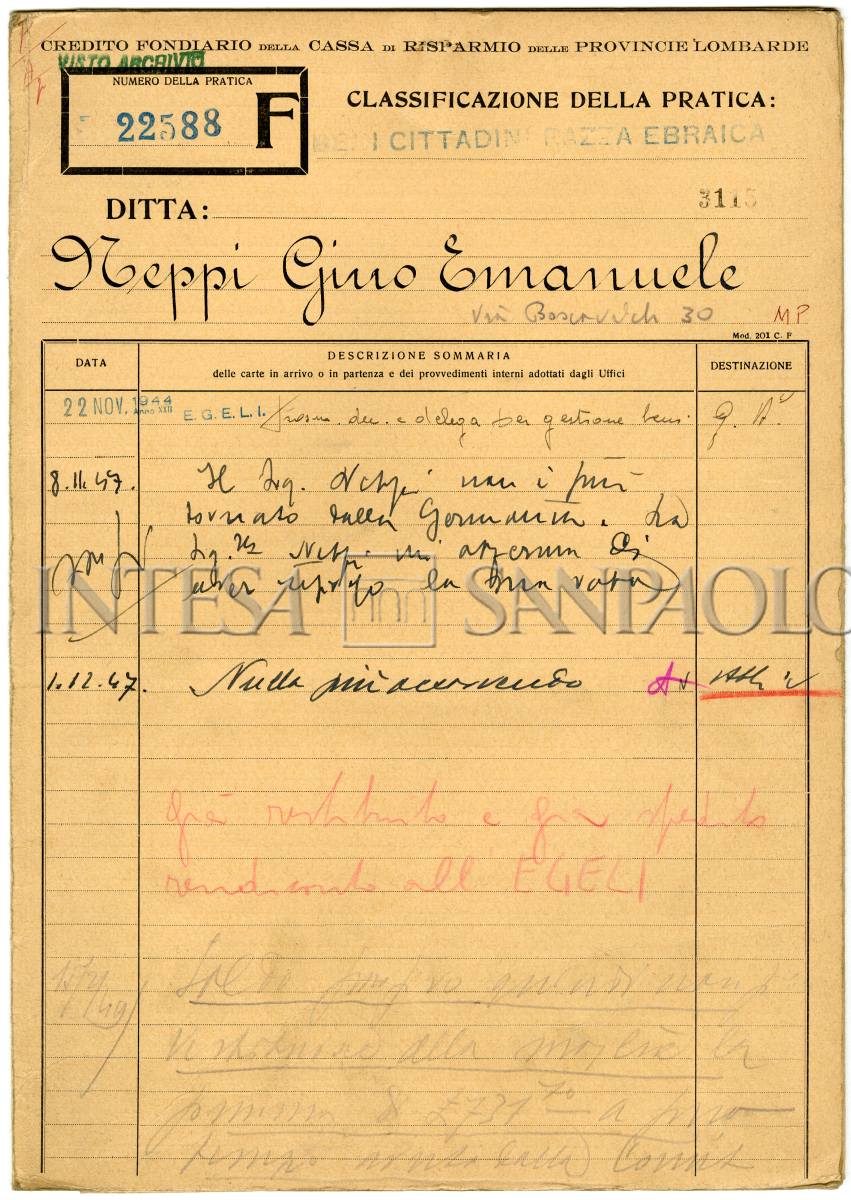 CREDITO FONDIARIO DELLA CASSA DI RISPARMIO DELLE PROVINCIE LOMBARDE
VISTO ARCHIVIO
NUMERO DELLA PRATICA
22588 F
CLASSIFICAZIONE DELLA PRATICA:
BENI CITTADINI RAZZA EBRAICA
3113
DITTA:
Neppi Gino Emanuele
Via Boscovich 30 MP
Mod. 201 C. F
DATA
DESCRIZIONE SOMMARIA
delle carte in arrivo o in partenza e dei provvedimenti interni adottati dagli Uffici
DESTINAZIONE
22 NOV. 1944 Anno XXII E.G.E.L.I. trasm. dec. e delega per gestione beni.
8.11.47. Il Sig. Neppi non è più
tornato dalla Germania. La
Sig.ra Neppi mi
aver la sua roba
INTESA SANPAOLO
1.12.47. Nulla più occorrendo
già restituito e già spedito
rendiconto all' EGELI
Saldo
restituire alla moglie la
somma di £ 731 a suo
tempo